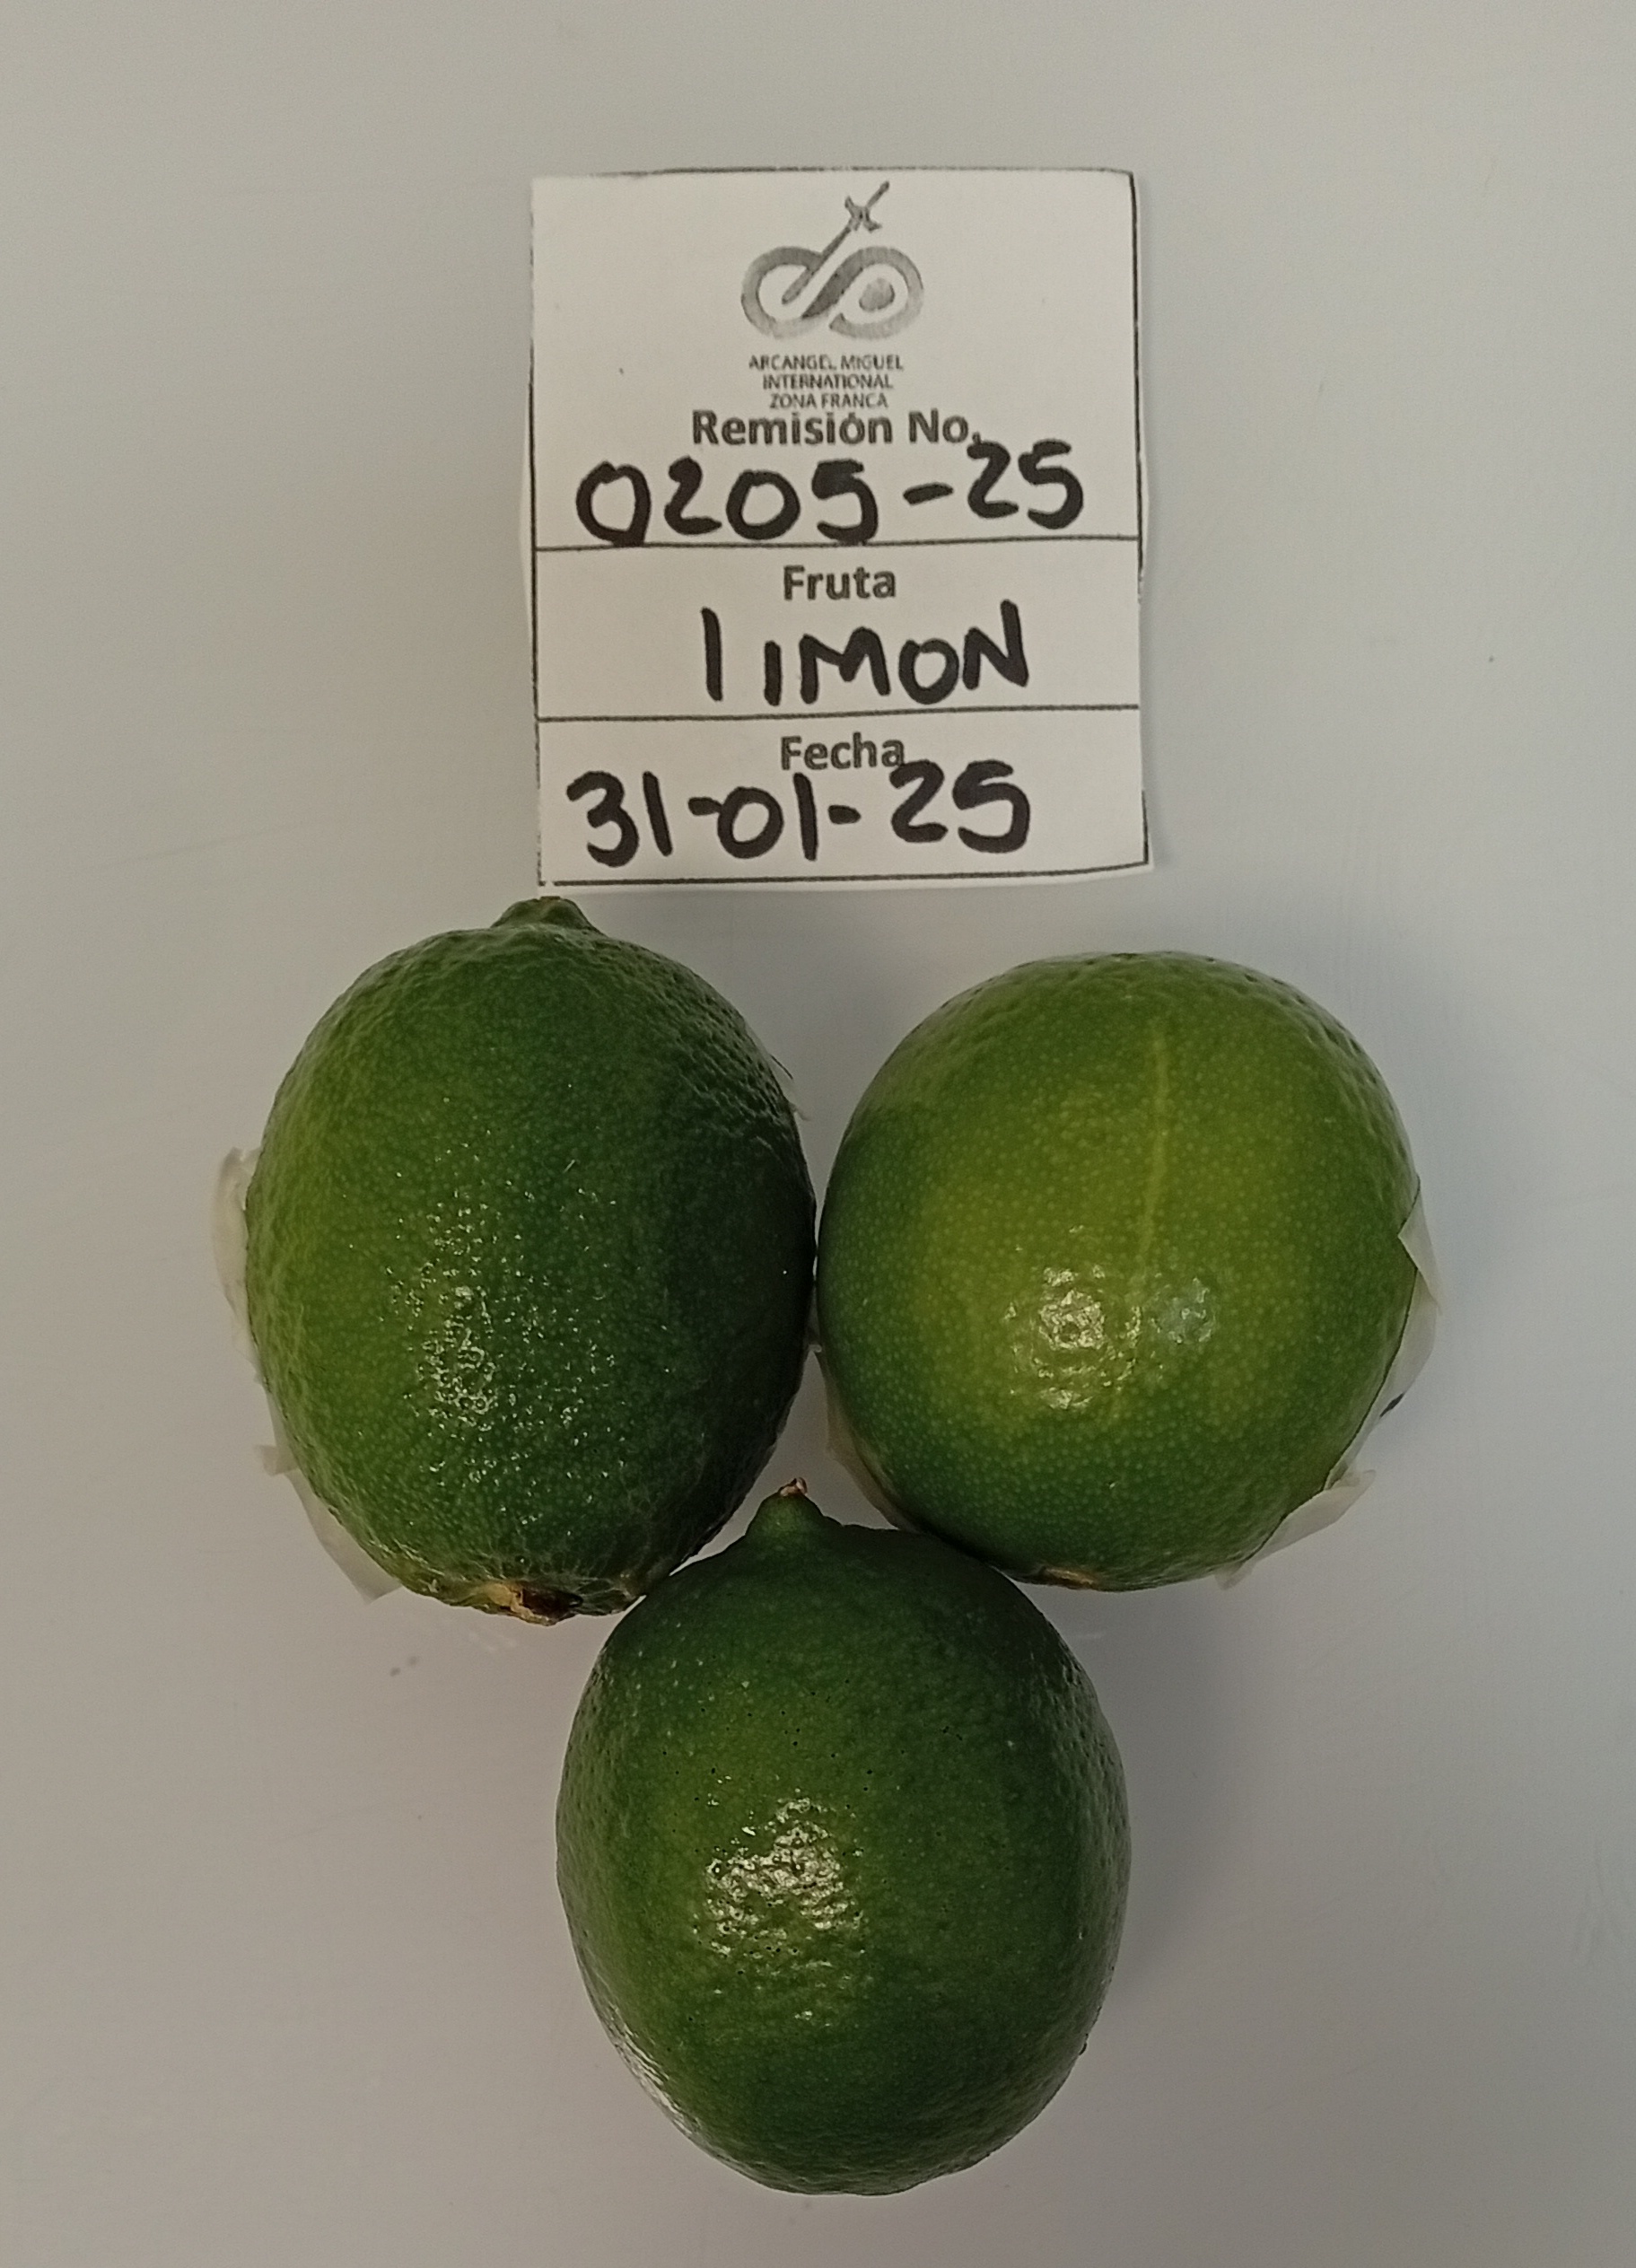 ARCANGEL MIGUEL
INTERNATIONAL
ZONA FRANCA
Remisión No.
0205-25
Fruta
lIMON
Fecha
31-01-25